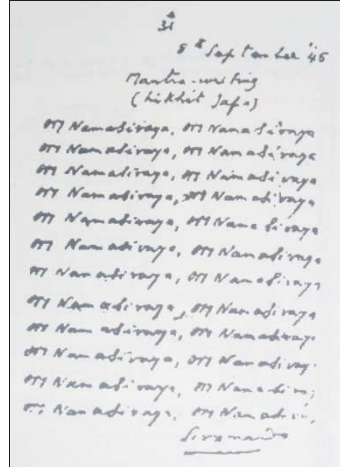 31
8th September '45
Mantra-writing
(Likhit Japa)
OM Namasivaya, OM Namasivaya
OM Namasivaya, OM Namasivaya
OM Namasivaya, OM Namasivaya
OM Namasivaya, OM Namasivaya
OM Namasivaya, OM Namasivaya
OM Namasivaya, OM Namasivaya
OM Namasivaya, OM Namasivaya
OM Namasivaya, OM Namasivaya
OM Namasivaya, OM Namasivaya
OM Namasivaya, OM Namasivay
OM Namasivaya, OM Namasiva
OM Namasivaya, OM Namasiva
Sivananda